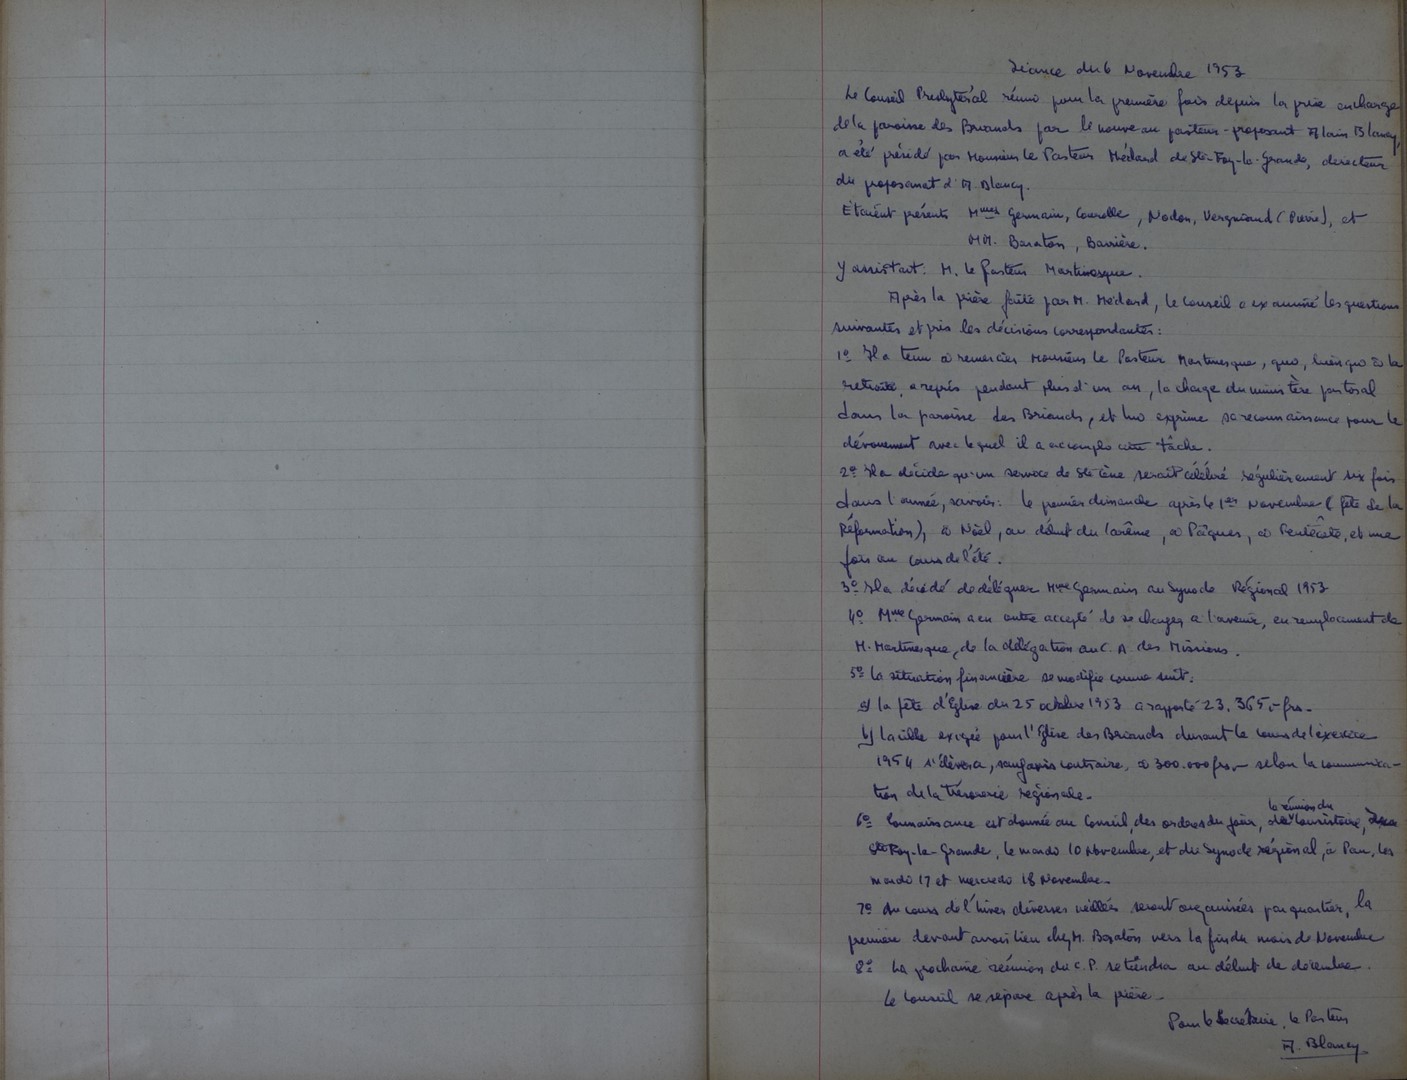 Séance du 6 Novembre 1953
Le Conseil Presbytéral réuni pour la première fois depuis la prise en charge
de la paroisse des Briands par le nouveau pasteur-proposant Alain Blancy,
a été présidé par Monsieur le Pasteur Médard de Ste-Foy-la-Grande, directeur
du proposanat d'A. Blancy.
Etaient présents Mmes Germain, Courolle, Nadon, Vergniaud (Pierre), et
MM. Baraton, Barrière.
Y assistait: M. le Pasteur Martinesque.
Après la prière faite par M. Médard, le Conseil a examiné les questions
suivantes et pris les décisions correspondantes:
1º Il a tenu à remercier Monsieur le Pasteur Martinesque, qui, bien qu'à la
retraite, a repris pendant plus d'un an, la charge du ministère pastoral
dans la paroisse des Briands, et lui exprime sa reconnaissance pour le
dévouement avec lequel il a accompli cette tâche.
2º Il a décidé qu'un service de Ste Cène serait célébré régulièrement six fois
dans l'année, savoir: le premier dimanche après le 1er Novembre (fête de la
Réformation), à Noël, au début du Carême, à Pâques, à Pentecôte, et une
fois au cours de l'été.
3º Il a décidé de déléguer Mme Germain au Synode Régional 1953
4º Mme Germain a en outre accepté de se charger à l'avenir, en remplacement de
M. Martinesque, de la délégation au C.A. des Missions.
5º La situation financière se modifie comme suit:
a) la fête d'Eglise du 25 octobre 1953 a rapporté 23.365,- frs.-
b) la cible exigée pour l'Eglise des Briands durant le cours de l'exercice
1954 s'élèvera, sauf avis contraire, à 300.000 frs.- selon la communica-
tion de la trésorerie régionale.-
6º Connaissance est donnée au Conseil, des ordres du jour, de la réunion du Consistoire, à
Ste Foy-la-Grande, le mardi 10 Novembre, et du Synode régional, à Pau, les
mardi 17 et mercredi 18 Novembre.-
7º Au cours de l'hiver diverses veillées seront organisées par quartier, la
première devant avoir lieu chez M. Baraton vers la fin du mois de Novembre
8º La prochaine réunion du C.P. se tiendra au début de décembre.
Le Conseil se sépare après la prière.-
Pour le Secrétaire, le Pasteur
A. Blancy